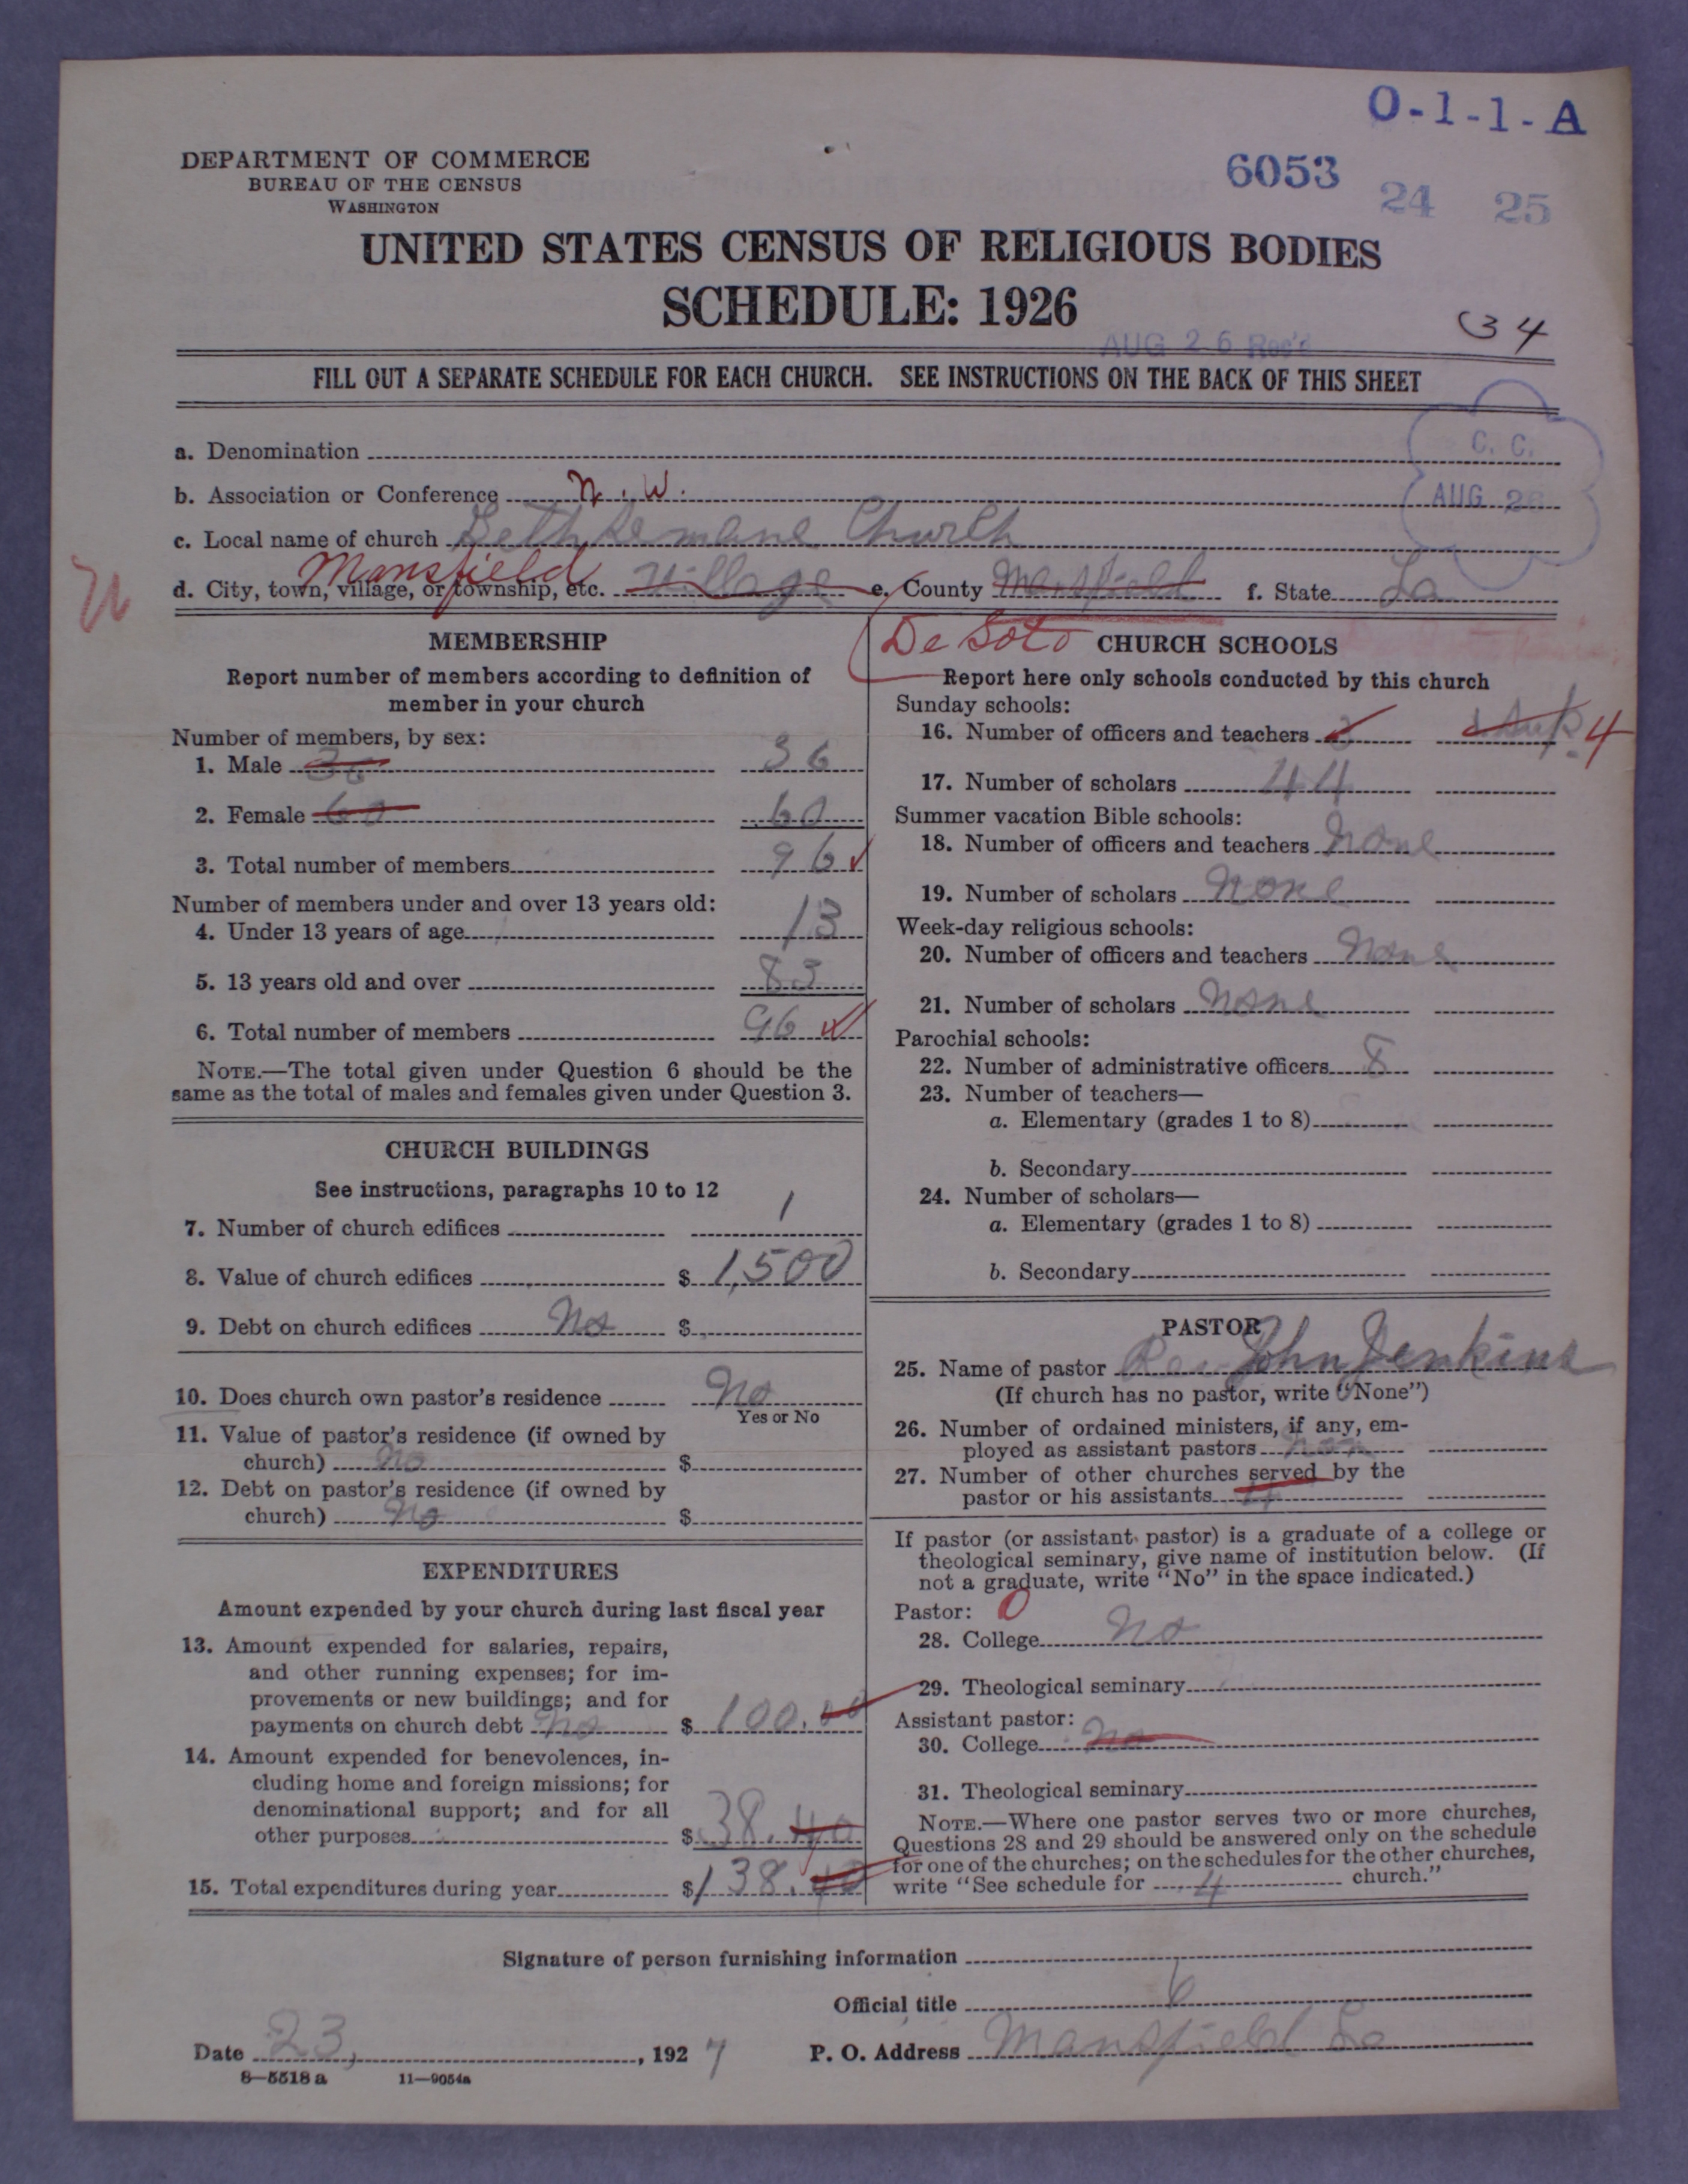 O-1-1-A
DEPARTMENT OF COMMERCE
BUREAU OF THE CENSUS
WASHINGTON
6053
24 25
UNITED STATES CENSUS OF RELIGIOUS BODIES
SCHEDULE: 1926
34
AUG 26 Rec'd
FILL OUT A SEPARATE SCHEDULE FOR EACH CHURCH. SEE INSTRUCTIONS ON THE BACK OF THIS SHEET
C. C.
AUG 26
a. Denomination
b. Association or Conference N. W.
c. Local name of church Gethsemane Church
d. City, town, village, or township, etc. Mansfield Village e. County Mansfield f. State La
De Soto
MEMBERSHIP
Report number of members according to definition of
member in your church
Number of members, by sex:
1. Male 36 36
2. Female 60 60
3. Total number of members 96
Number of members under and over 13 years old:
4. Under 13 years of age 13
5. 13 years old and over 83
6. Total number of members 96
NOTE.—The total given under Question 6 should be the
same as the total of males and females given under Question 3.
CHURCH BUILDINGS
See instructions, paragraphs 10 to 12
7. Number of church edifices 1
8. Value of church edifices $ 1,500
9. Debt on church edifices No $
10. Does church own pastor's residence No
Yes or No
11. Value of pastor's residence (if owned by
church) No $
12. Debt on pastor's residence (if owned by
church) No $
EXPENDITURES
Amount expended by your church during last fiscal year
13. Amount expended for salaries, repairs,
and other running expenses; for im-
provements or new buildings; and for
payments on church debt No $ 100.00
14. Amount expended for benevolences, in-
cluding home and foreign missions; for
denominational support; and for all
other purposes $ 38.40
15. Total expenditures during year $ 138.40
CHURCH SCHOOLS
Report here only schools conducted by this church
Sunday schools:
16. Number of officers and teachers 3 4
17. Number of scholars 44
Summer vacation Bible schools:
18. Number of officers and teachers None
19. Number of scholars None
Week-day religious schools:
20. Number of officers and teachers None
21. Number of scholars None
Parochial schools:
22. Number of administrative officers 8
23. Number of teachers—
a. Elementary (grades 1 to 8)
b. Secondary
24. Number of scholars—
a. Elementary (grades 1 to 8)
b. Secondary
PASTOR
25. Name of pastor Rev John Jenkins
(If church has no pastor, write "None")
26. Number of ordained ministers, if any, em-
ployed as assistant pastors
27. Number of other churches served by the
pastor or his assistants 4
If pastor (or assistant pastor) is a graduate of a college or
theological seminary, give name of institution below. (If
not a graduate, write "No" in the space indicated.)
Pastor: 0
28. College No
29. Theological seminary
Assistant pastor:
30. College No
31. Theological seminary
NOTE.—Where one pastor serves two or more churches,
Questions 28 and 29 should be answered only on the schedule
for one of the churches; on the schedules for the other churches,
write "See schedule for 4 church."
Signature of person furnishing information
Official title
Date 23, 1927 P. O. Address Mansfield La
8—5518 a 11—9054a